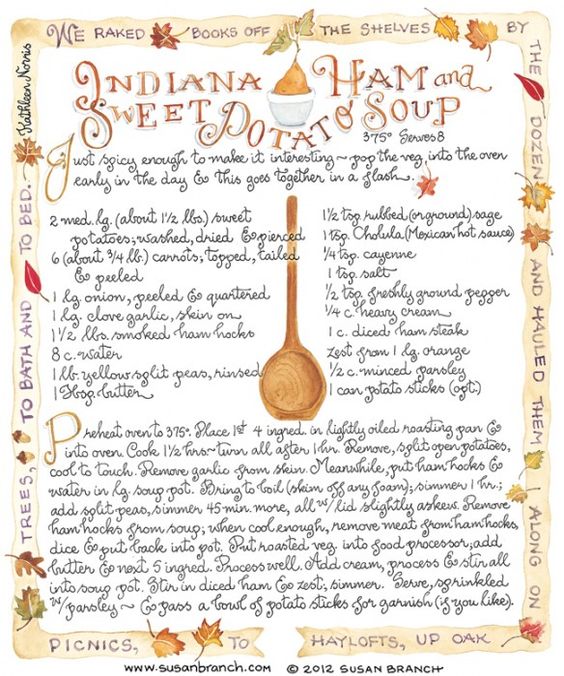 WE RAKED BOOKS OFF THE SHELVES BY
THE DOZEN AND HAULED THEM ALONG ON
PICNICS, TO HAYLOFTS, UP OAK
TREES, TO BATH AND TO BED.
Kathleen Norris
INDIANA HAM and
SWEET POTATO SOUP
375° Serves 8
Just spicy enough to make it interesting ~ pop the veg. into the oven
early in the day & this goes together in a flash.
2 med. lg. (about 1½ lbs.) sweet
potatoes; washed, dried & pierced
6 (about ¾ lb.) carrots; topped, tailed
& peeled
1 lg. onion, peeled & quartered
1 lg. clove garlic, skin on
1½ lbs. smoked ham hocks
8 c. water
1 lb. yellow split peas, rinsed
1 Tbsp. butter
1½ tsp. rubbed (or ground) sage
1 tsp. Cholula (Mexican hot sauce)
¼ tsp. cayenne
1 tsp. salt
½ tsp. freshly ground pepper
¼ c. heavy cream
1 c. diced ham steak
zest from 1 lg. orange
½ c. minced parsley
1 can potato sticks (opt.)
Preheat oven to 375°. Place 1st 4 ingred. in lightly oiled roasting pan &
into oven. Cook 1½ hrs ~ turn all after 1 hr. Remove, split open potatoes,
cool to touch. Remove garlic from skin. Meanwhile, put ham hocks &
water in lg. soup pot. Bring to boil (skim off any foam); simmer 1 hr.;
add split peas, simmer 45 min. more, all w/ lid slightly askew. Remove
ham hocks from soup; when cool enough, remove meat from ham hocks,
dice & put back into pot. Put roasted veg. into food processor; add
butter & next 5 ingred. Process well. Add cream, process & stir all
into soup pot. Stir in diced ham & zest; simmer. Serve, sprinkled
w/ parsley ~ & pass a bowl of potato sticks for garnish (if you like).
www.susanbranch.com © 2012 SUSAN BRANCH